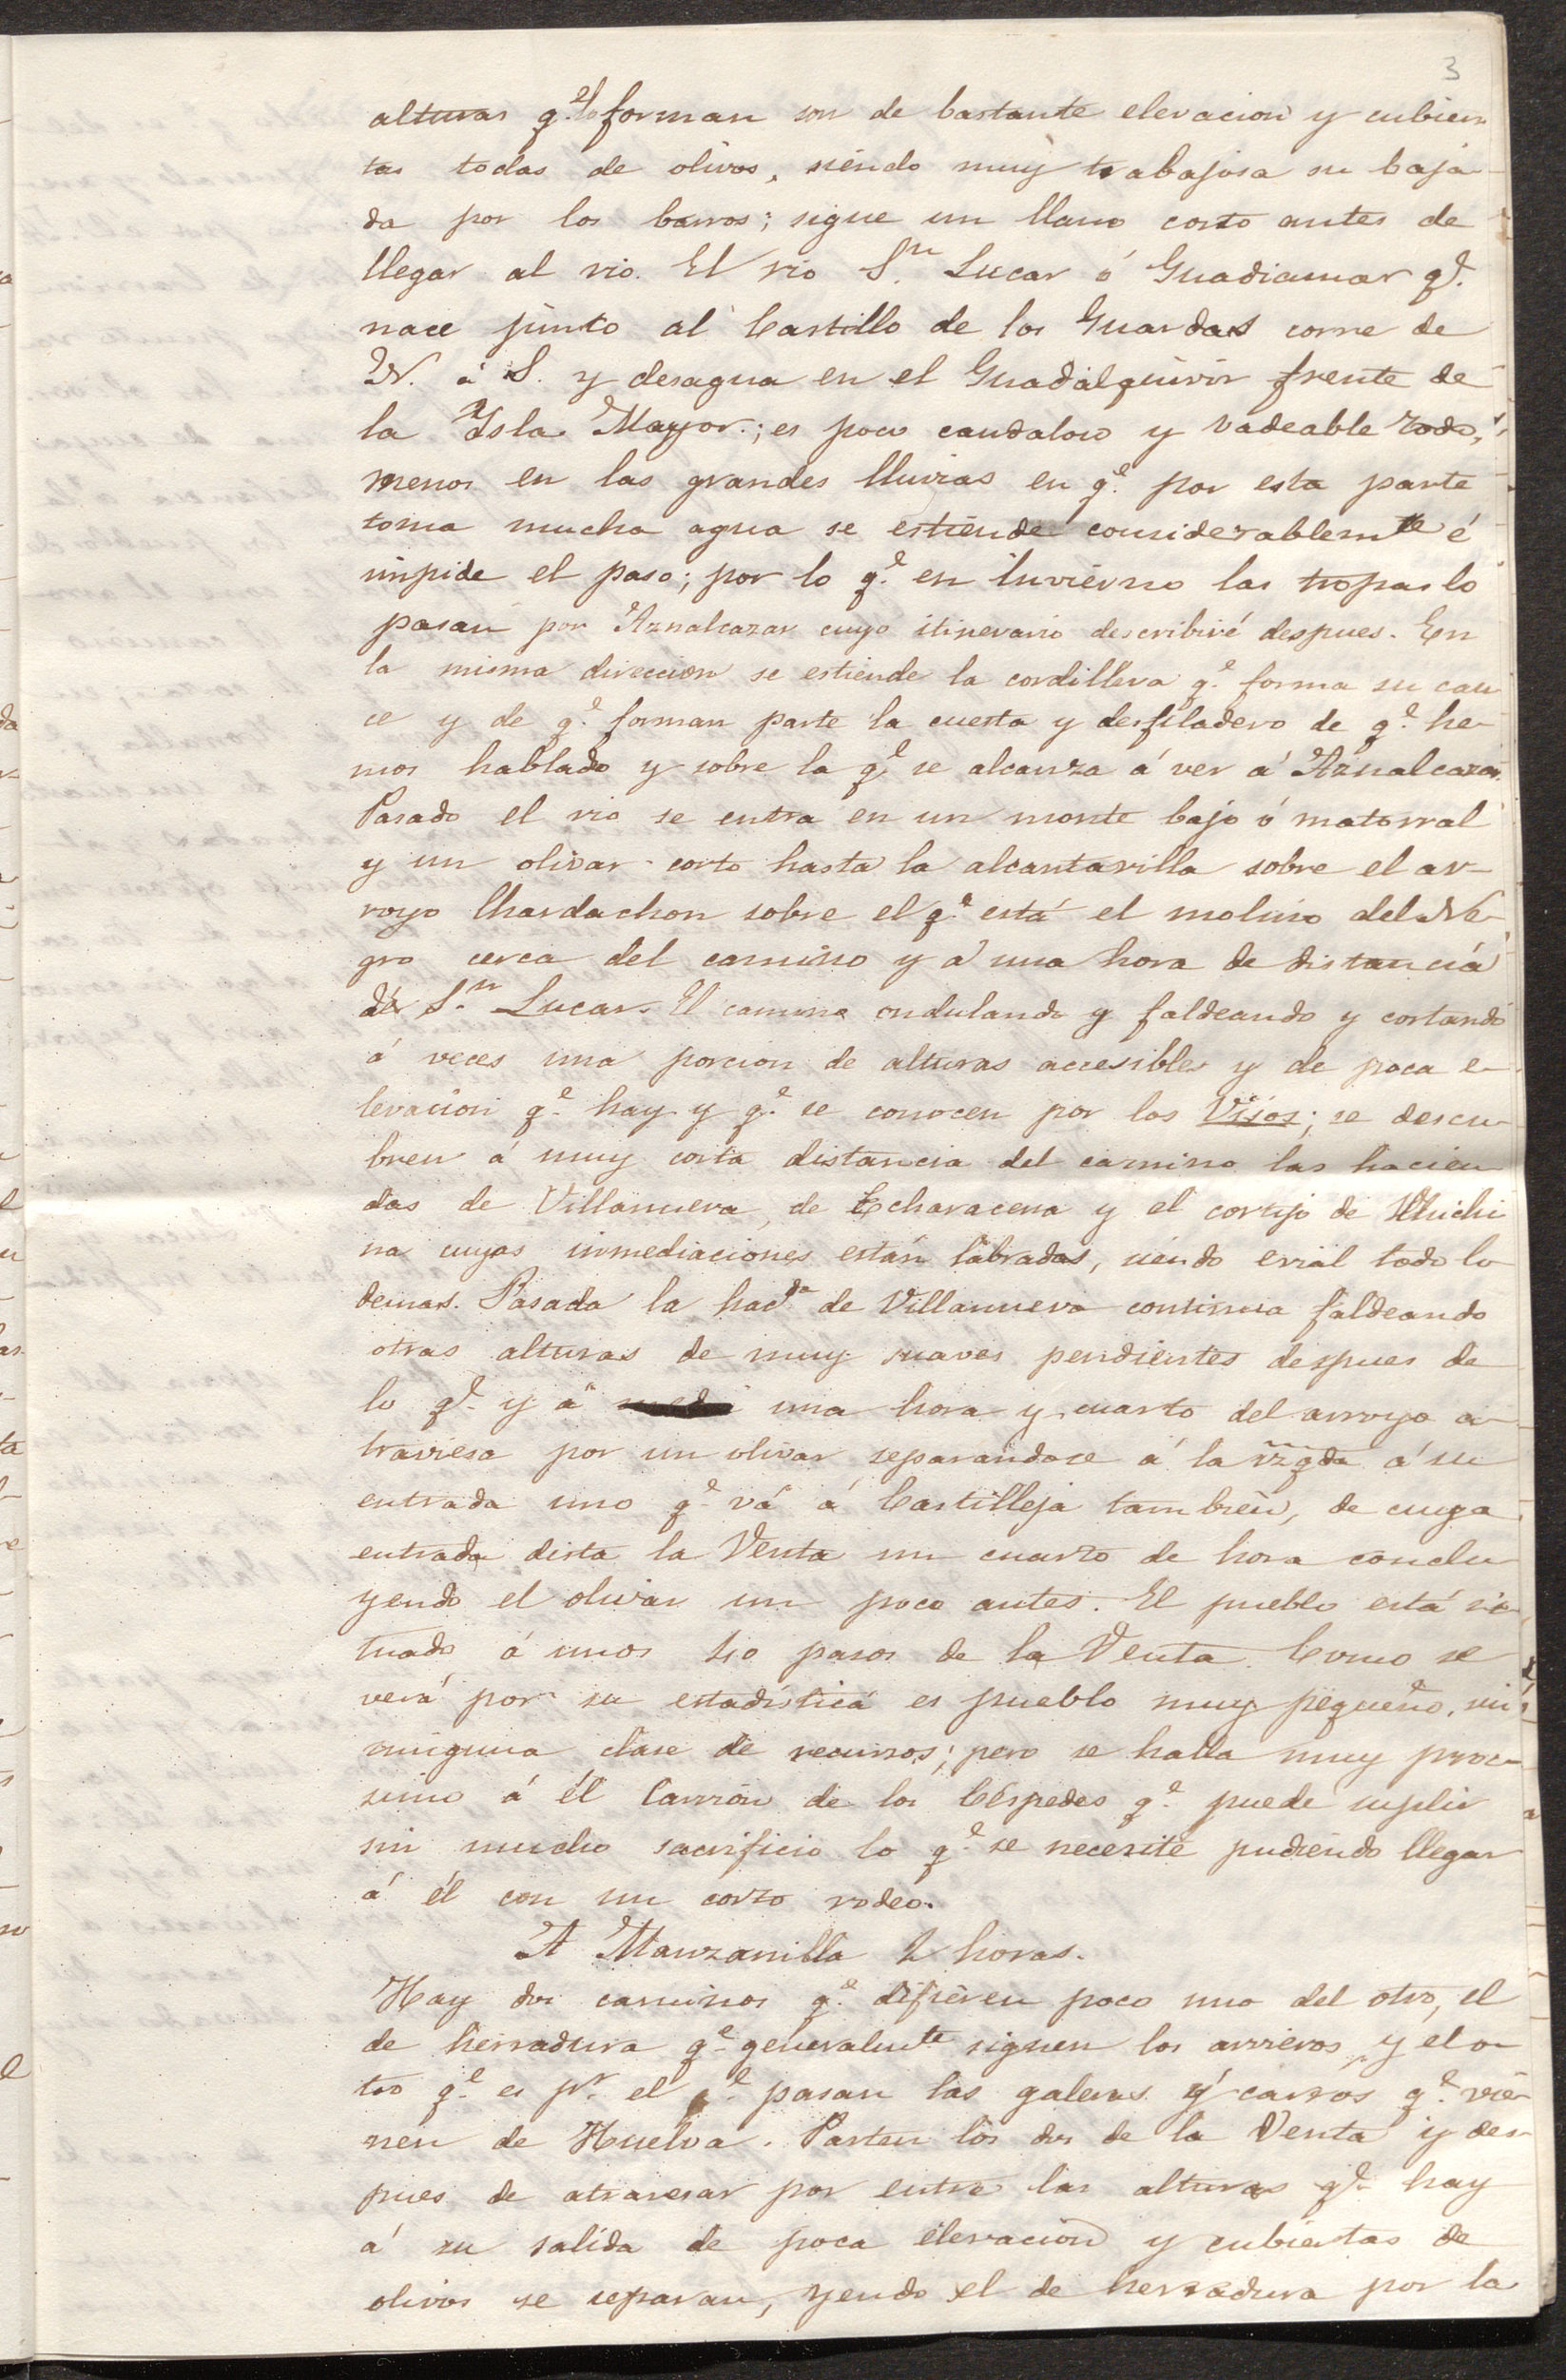 3
alturas q.e lo forman son de bastante elevacion y cubier
tas todas de olivos, siendo muy trabajosa su baja-
da por los barros; sigue un llano corto antes de
llegar al rio. El rio S.n Lucar ó Guadiamar q.e
nace junto al Castillo de los Guardas corre de
N. á S. y desagua en el Guadalquivir frente de
la Isla Mayor; es poco caudaloso y vadeable todo,
menos en las grandes lluvias en q.e por esta parte
toma mucha agua se estiende considerablemte é
impide el paso; por lo q.e en invierno las tropas lo
pasan por Aznalcazar cuyo itinerario describiré despues. En
la misma direccion se estiende la cordillera q.e forma su cau
ce y de q.e forman parte la cuesta y desfiladero de q.e he-
mos hablado y sobre la q.e se alcanza á ver á Aznalcazar.
Pasado el rio se entra en un monte bajo ó matorral
y un olivar corto hasta la alcantarilla sobre el ar-
royo Chardachon sobre el q.e está el molino del Ne-
gro cerca del camino y á una hora de distancia
de S.n Lucar. El camino ondulando y faldeando y cortando
á veces una porcion de alturas accesibles y de poca e-
levacion q.e hay y q.e se conocen por los Visos; se descu-
bren á muy corta distancia del camino las hacien-
das de Villanueva, de Echaracena y el cortijo de Chichi
na cuyas inmediaciones están labradas, siendo erial todo lo
demas. Pasada la hac.da de Villanueva continua faldeando
otras alturas de muy suaves pendientes despues de
lo q.e y á una hora y cuarto del arroyo a-
traviesa por un olivar separandose á la izqda á su
entrada uno q.e vá á Castilleja tambien, de cuya
entrada dista la Venta un cuarto de hora conclu-
yendo el olivar un poco antes. El pueblo está si-
tuado á unos 40 pasos de la Venta. Como se
verá por su estadística es pueblo muy pequeño, sin
ninguna clase de recursos; pero se halla muy proc-
simo á él Carrión de los Céspedes q.e puede suplir
sin mucho sacrificio lo q.e se necesite pudiendo llegar
á él con un corto rodeo.
A Manzanilla 2 horas.
Hay dos caminos q.e difieren poco uno del otro, el
de herradura q.e generalmte siguen los arrieros, y el o-
tro q.e es p.r el q.e pasan las galeras y carros q.e vie-
nen de Huelva. Parten los dos de la Venta y des-
pues de atravesar por entre las alturas q.e hay
á su salida de poca elevacion y cubiertas de
olivos se separan, yendo el de herradura por la